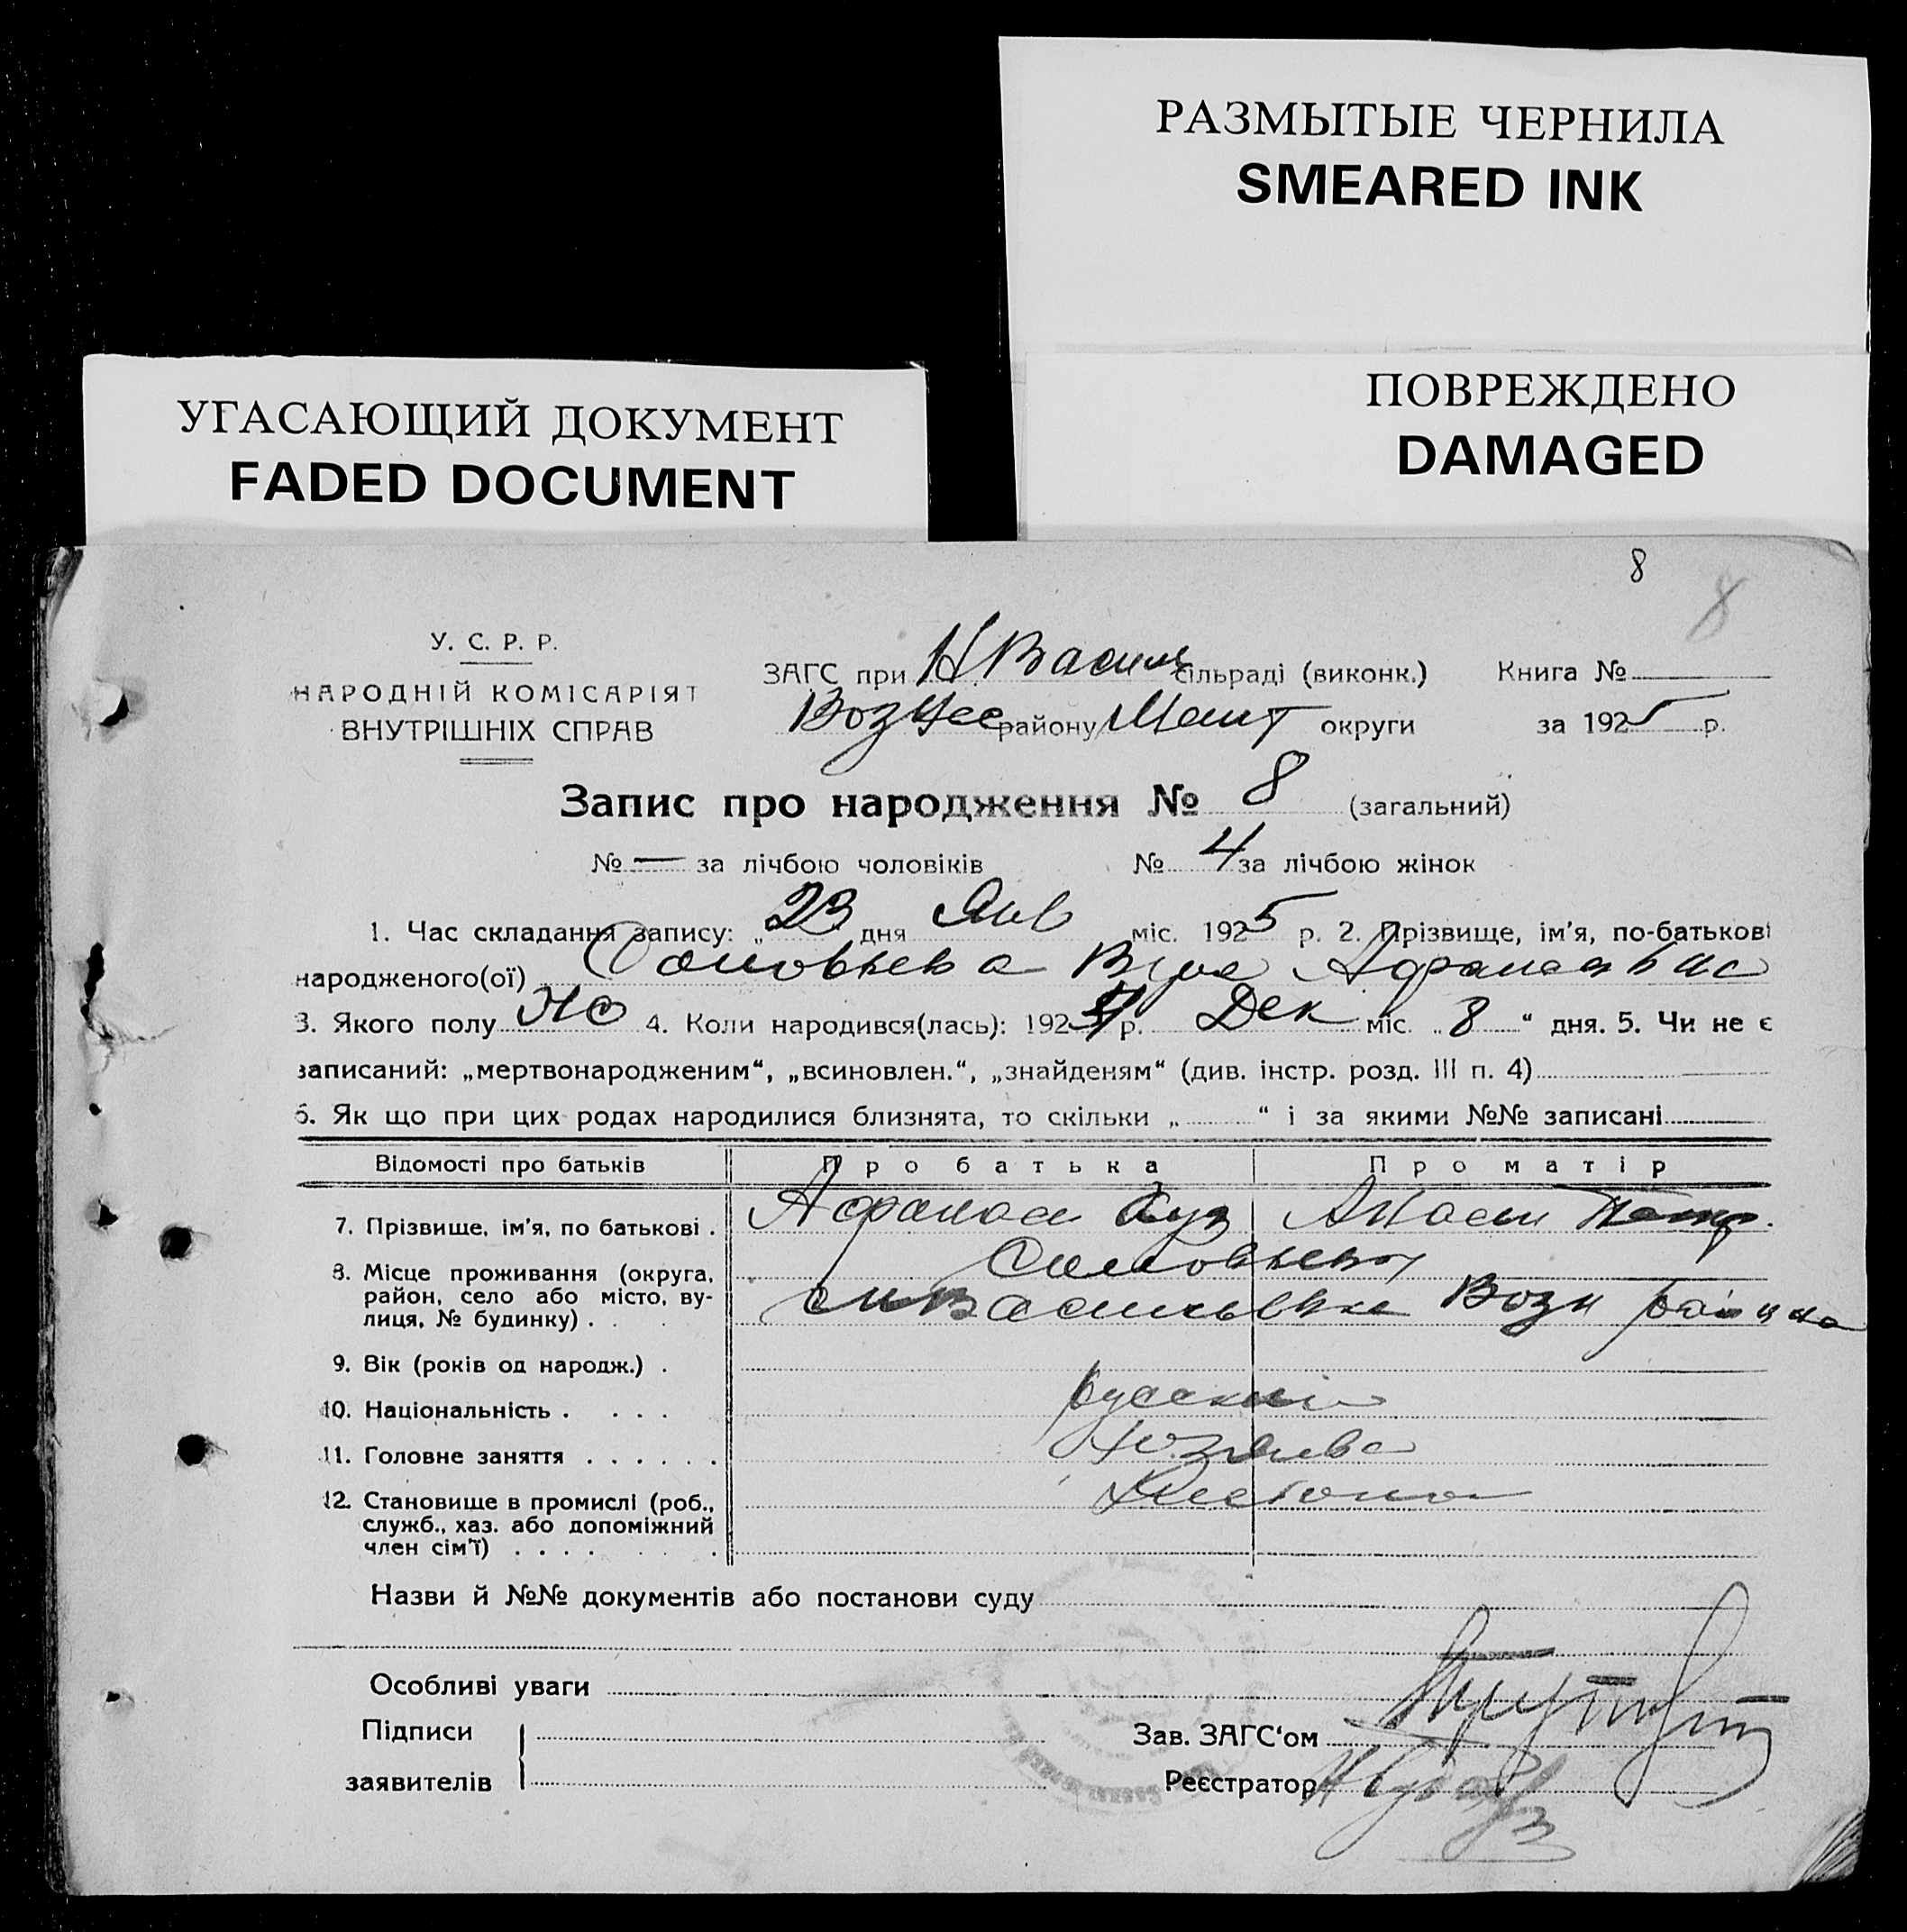 РАЗМЫТЫЕ ЧЕРНИЛА
SMEARED INK
УГАСАЮЩИЙ ДОКУМЕНТ
FADED DOCUMENT
ПОВРЕЖДЕНО
DAMAGED
8
8
У. С. Р. Р.
НАРОДНІЙ КОМІСАРІЯТ
ВНУТРІШНІХ СПРАВ
ЗАГС при Н. Васил сільраді (виконк.) Книга №
Вознес району округи за 1925 р.
Запис про народження № 8 (загальний)
№ — за лічбою чоловіків № 4 за лічбою жінок
1. Час складання запису: „ 23 дня Янв міс. 1925 р. 2. Прізвище, ім'я, по-батькові
народженого(ої) Соловьева Вера Афанасьевна
3. Якого полу Же 4. Коли народився(лась): 1924 р. Дек міс. „ 8 “ дня. 5. Чи не є
записаний: „мертвонародженим“, „всиновлен.“, „знайденям“ (див. інстр. розд. III п. 4)
6. Як що при цих родах народилися близнята, то скільки „ “ і за якими №№ записані
Відомості про батьків Про батька Про матір
7. Прізвище, ім'я, по батькові . Афанаси Куз Анаст Петр.
Соловьевы
8. Місце проживання (округа,
район, село або місто, ву-
лиця, № будинку) . . Васильевка Возн района
9. Вік (років од народж.) .
10. Національність . . . . русский
11. Головне заняття . . . . . .
12. Становище в промислі (роб.,
служб., хаз. або допоміжний
член сім'ї) . . . .
Назви й №№ документів або постанови суду
Особливі уваги
Підписи
заявителів
Зав. ЗАГС'ом
Реєстратор